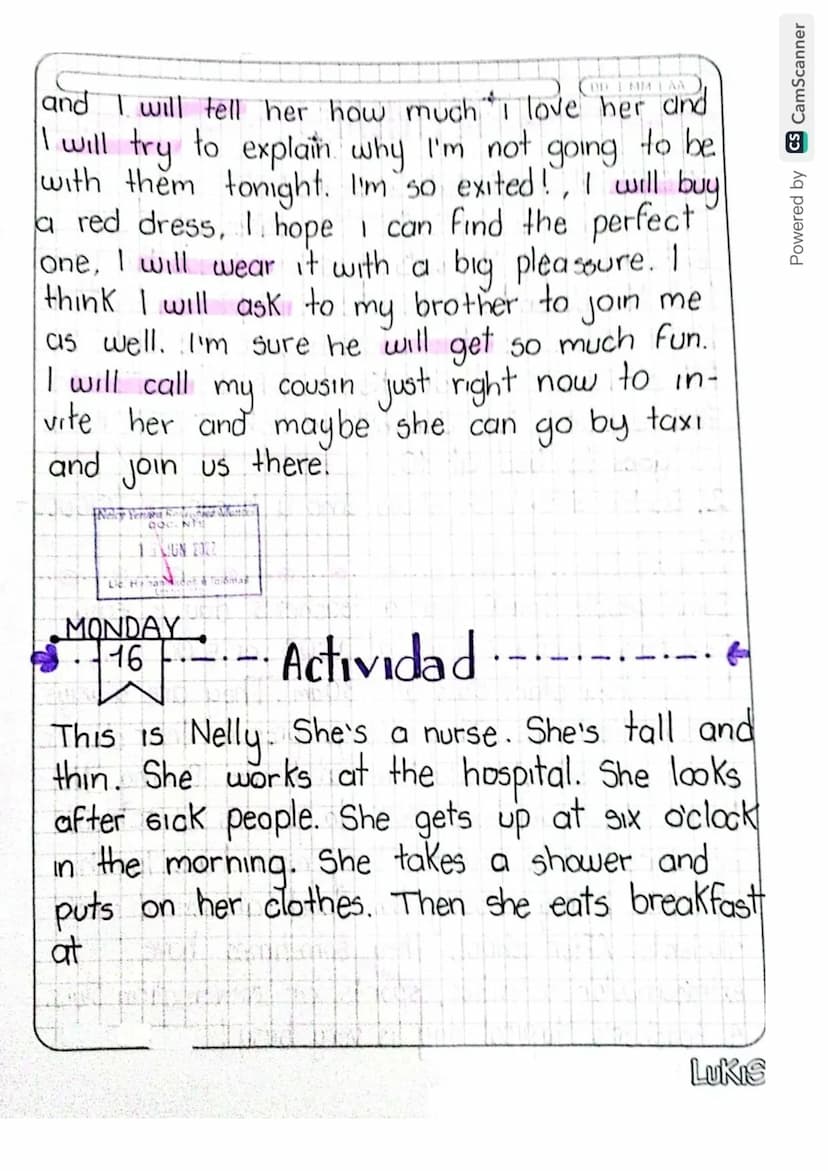 DD MM AA
and I will tell her how much i love her and
I will try to explain why I'm not going to be
with them tonight. I'm so exited!, I will buy
a red dress, I hope i can find the perfect
one, I will wear it with a big pleassure. I
think I will ask to my brother to join me
as well. I'm sure he will get so much fun.
I will call my cousin just right now to in-
vite her and maybe she can go by taxi
and join us there.
JUN
MONDAY
16
Actividad
This is Nelly. She's a nurse. She's tall and
thin. She works at the hospital. She looks
after sick people. She gets up at six o'clock
in the morning. She takes a shower and
puts on her clothes. Then she eats breakfast
at
LUKIS
Powered by CS CamScanner